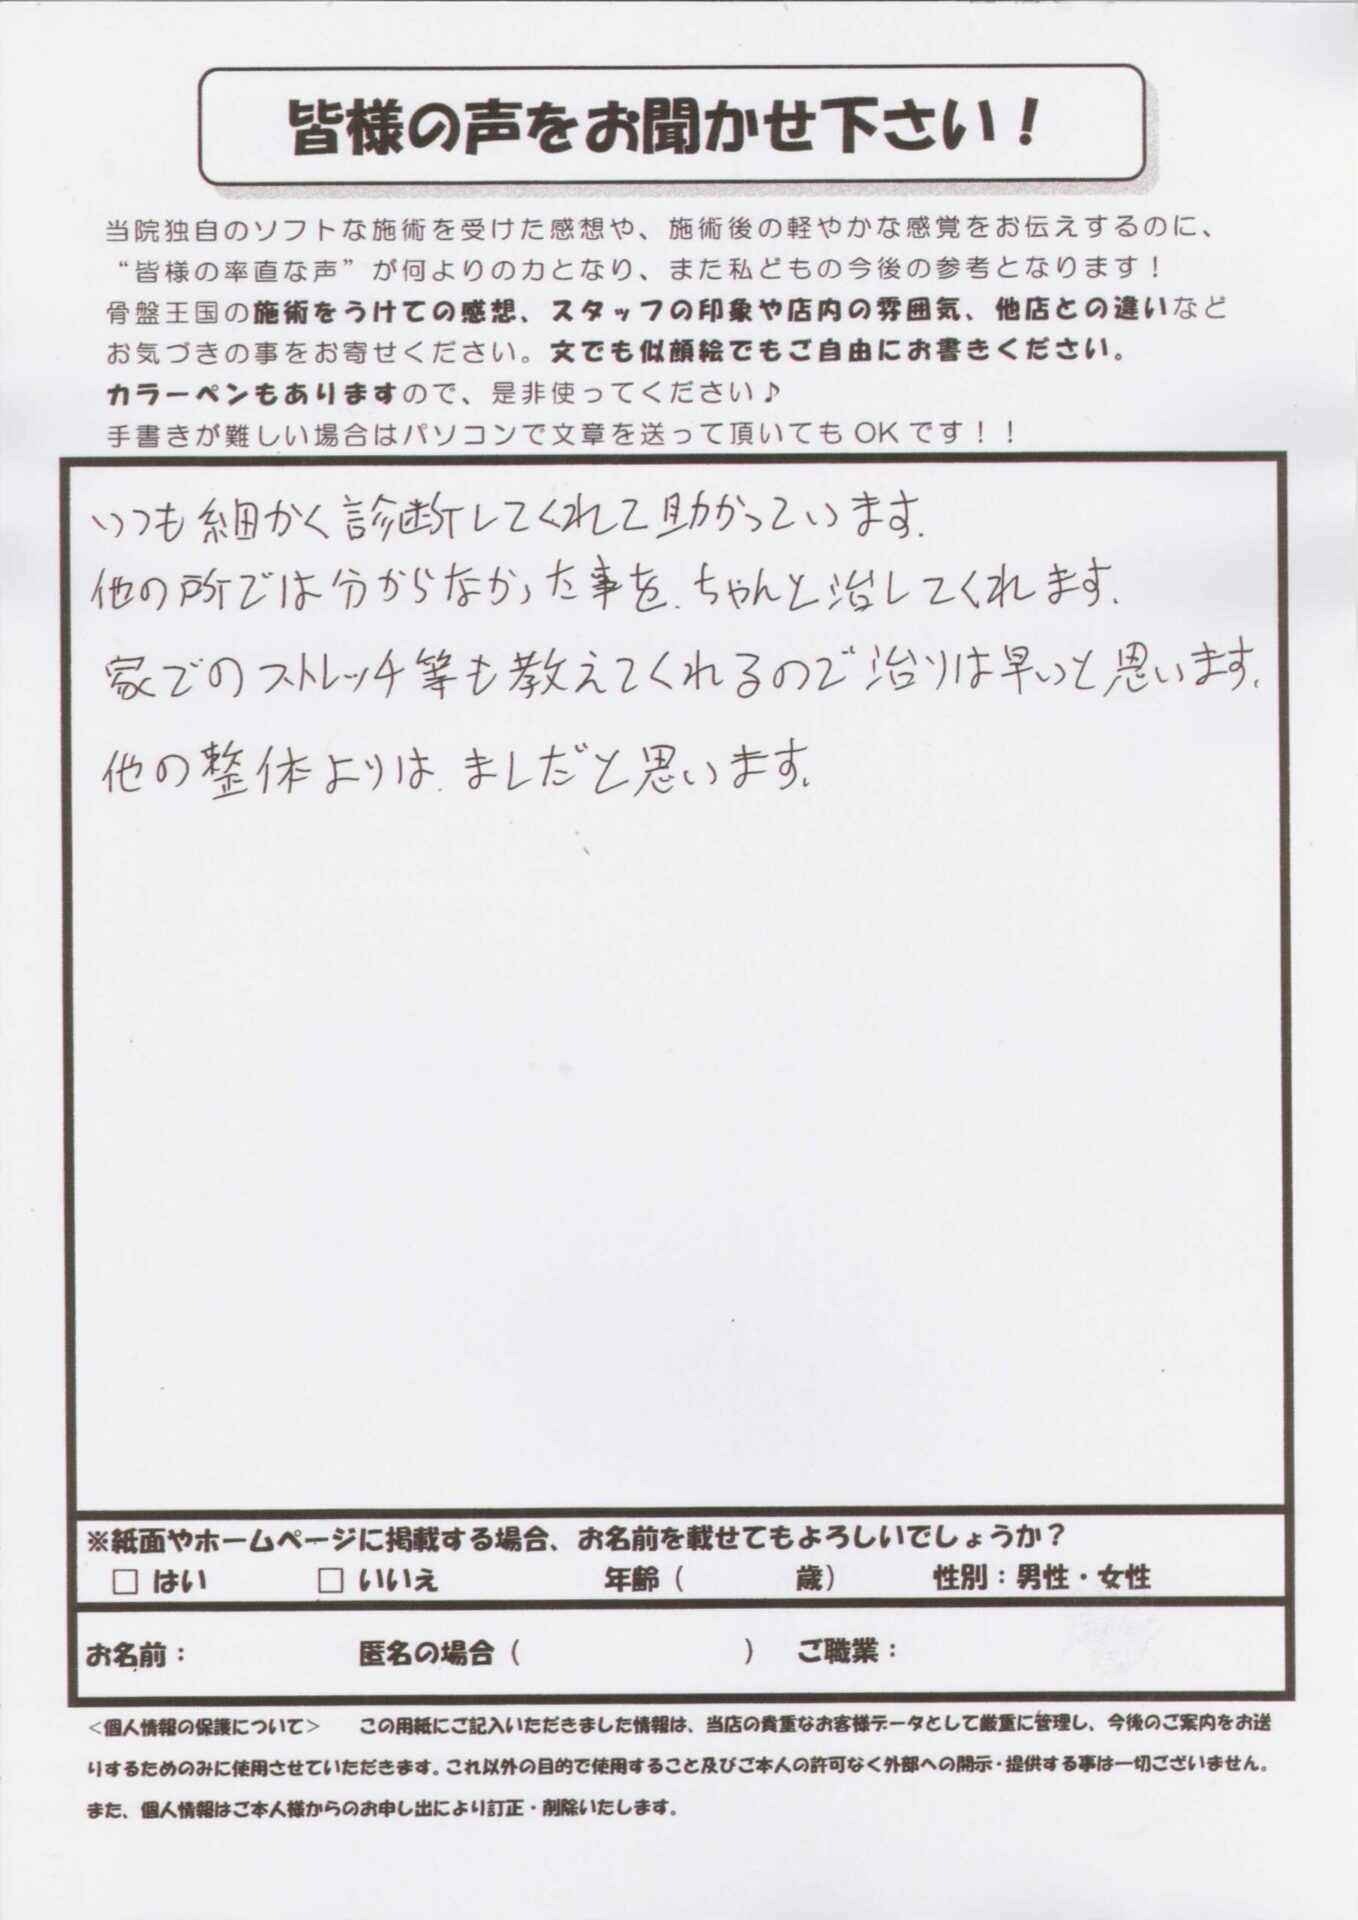 皆様の声をお聞かせ下さい！
当院独自のソフトな施術を受けた感想や、施術後の軽やかな感覚をお伝えするのに、
“皆様の率直な声”が何よりの力となり、また私どもの今後の参考となります！
骨盤王国の施術をうけての感想、スタッフの印象や店内の雰囲気、他店との違いなど
お気づきの事をお寄せください。文でも似顔絵でもご自由にお書きください。
カラーペンもありますので、是非使ってください♪
手書きが難しい場合はパソコンで文章を送って頂いてもOKです！！
いつも細かく診断してくれて助かっています.
他の所では分からなかった事を、ちゃんと治してくれます.
家でのストレッチ等も教えてくれるので治りは早いと思います.
他の整体よりは、ましだと思います.
※紙面やホームページに掲載する場合、お名前を載せてもよろしいでしょうか？
□ はい □ いいえ 年齢（ 歳） 性別：男性・女性
お名前： 匿名の場合（ ） ご職業：
＜個人情報の保護について＞ この用紙にご記入いただきました情報は、当店の貴重なお客様データとして厳重に管理し、今後のご案内をお送
りするためのみに使用させていただきます。これ以外の目的で使用すること及びご本人の許可なく外部への開示・提供する事は一切ございません。
また、個人情報はご本人様からのお申し出により訂正・削除いたします。